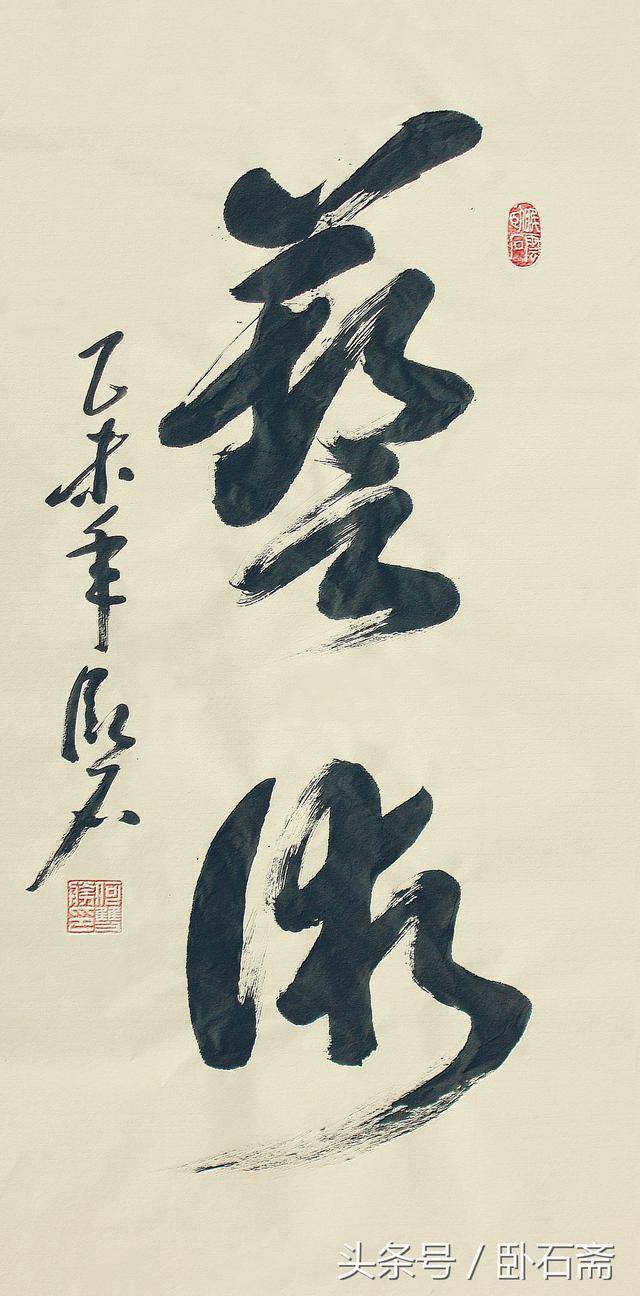 藝術
乙未年臥石
头条号 / 卧石斋